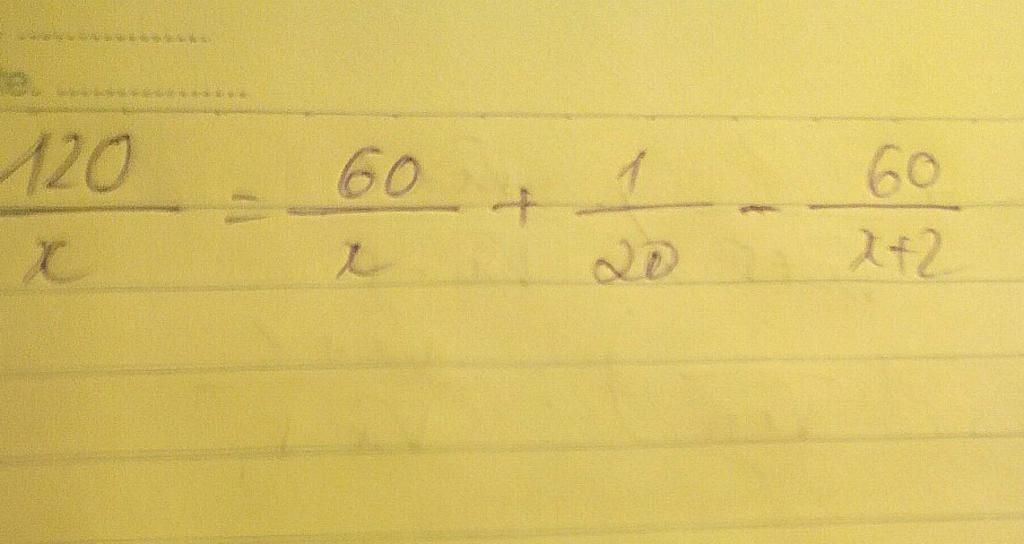 e. ..............
120/x = 60/x + 1/20 - 60/x+2